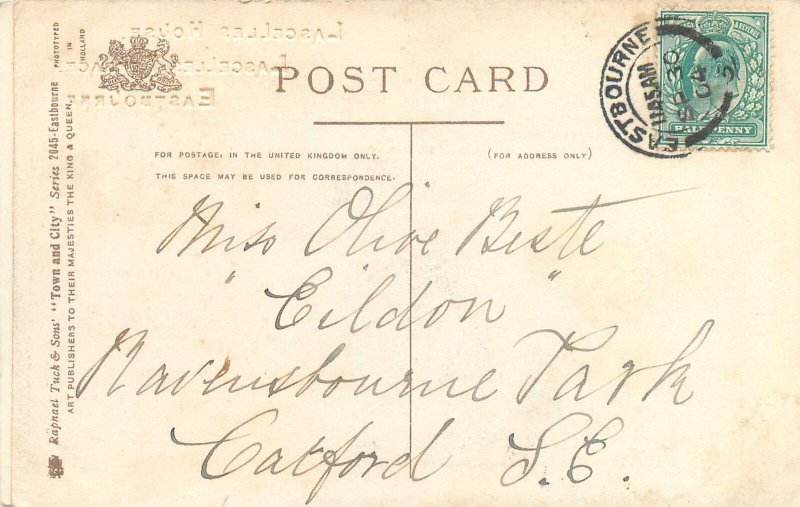 LASCELLES HOUSE
LASCELLES
EASTBOURNE
PHOTOTYPED
IN
HOLLAND
POST CARD
EASTBOURNE
11 45 AM
SP 30
04
HALFPENNY
FOR POSTAGE, IN THE UNITED KINGDOM ONLY.
THIS SPACE MAY BE USED FOR CORRESPONDENCE.
(FOR ADDRESS ONLY)
Miss Olive Beste
"Eildon"
Ravensbourne Park
Catford S.E.
Raphael Tuck & Sons' "Town and City" Series 2045-Eastbourne
ART PUBLISHERS TO THEIR MAJESTIES THE KING & QUEEN.